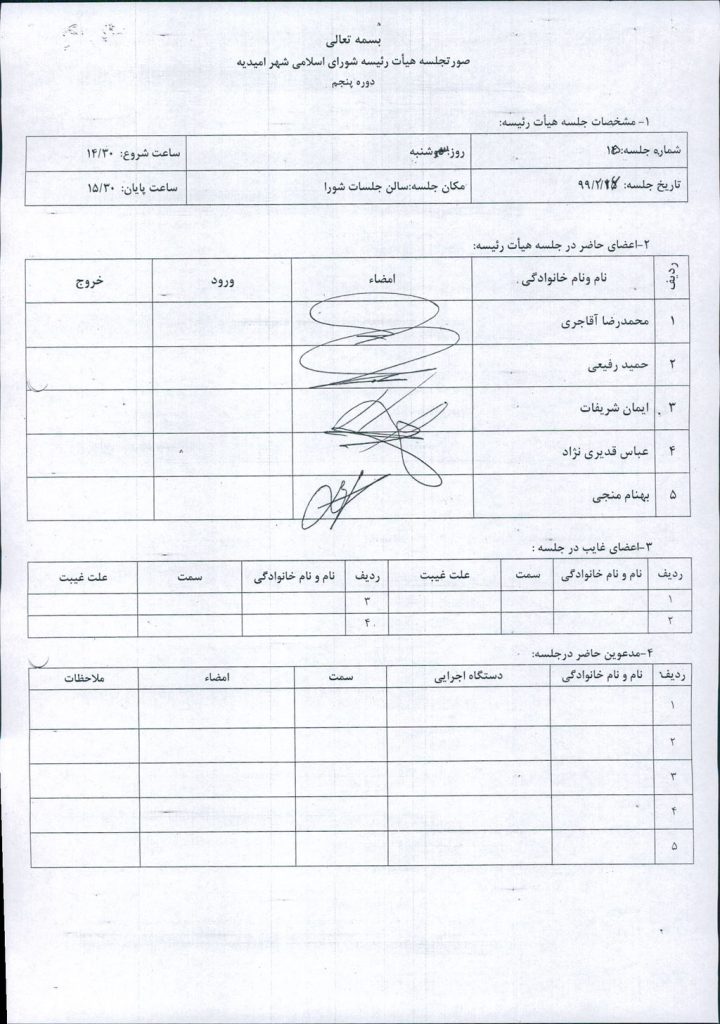 بسمه تعالی
صورتجلسه هیأت رئیسه شورای اسلامی شهر امیدیه
دوره پنجم
۱- مشخصات جلسه هیأت رئیسه:
شماره جلسه: روز: ساعت شروع: ۱۴/۳۰
تاریخ جلسه: مکان جلسه:سالن جلسات شورا ساعت پایان: ۱۵/۳۰
۲-اعضای حاضر در جلسه هیأت رئیسه:
ردیف نام ونام خانوادگی امضاء ورود خروج
۱ محمدرضا آقاجری
۲ حمید رفیعی
۳ ایمان شریفات
۴ عباس قدیری نژاد
۵ بهنام منجی
۳-اعضای غایب در جلسه :
ردیف نام و نام خانوادگی سمت علت غیبت ردیف نام و نام خانوادگی سمت علت غیبت
۱ ۳
۲ ۴
۴-مدعوین حاضر درجلسه:
ردیف نام و نام خانوادگی دستگاه اجرایی سمت امضاء ملاحظات
۱
۲
۳
۴
۵